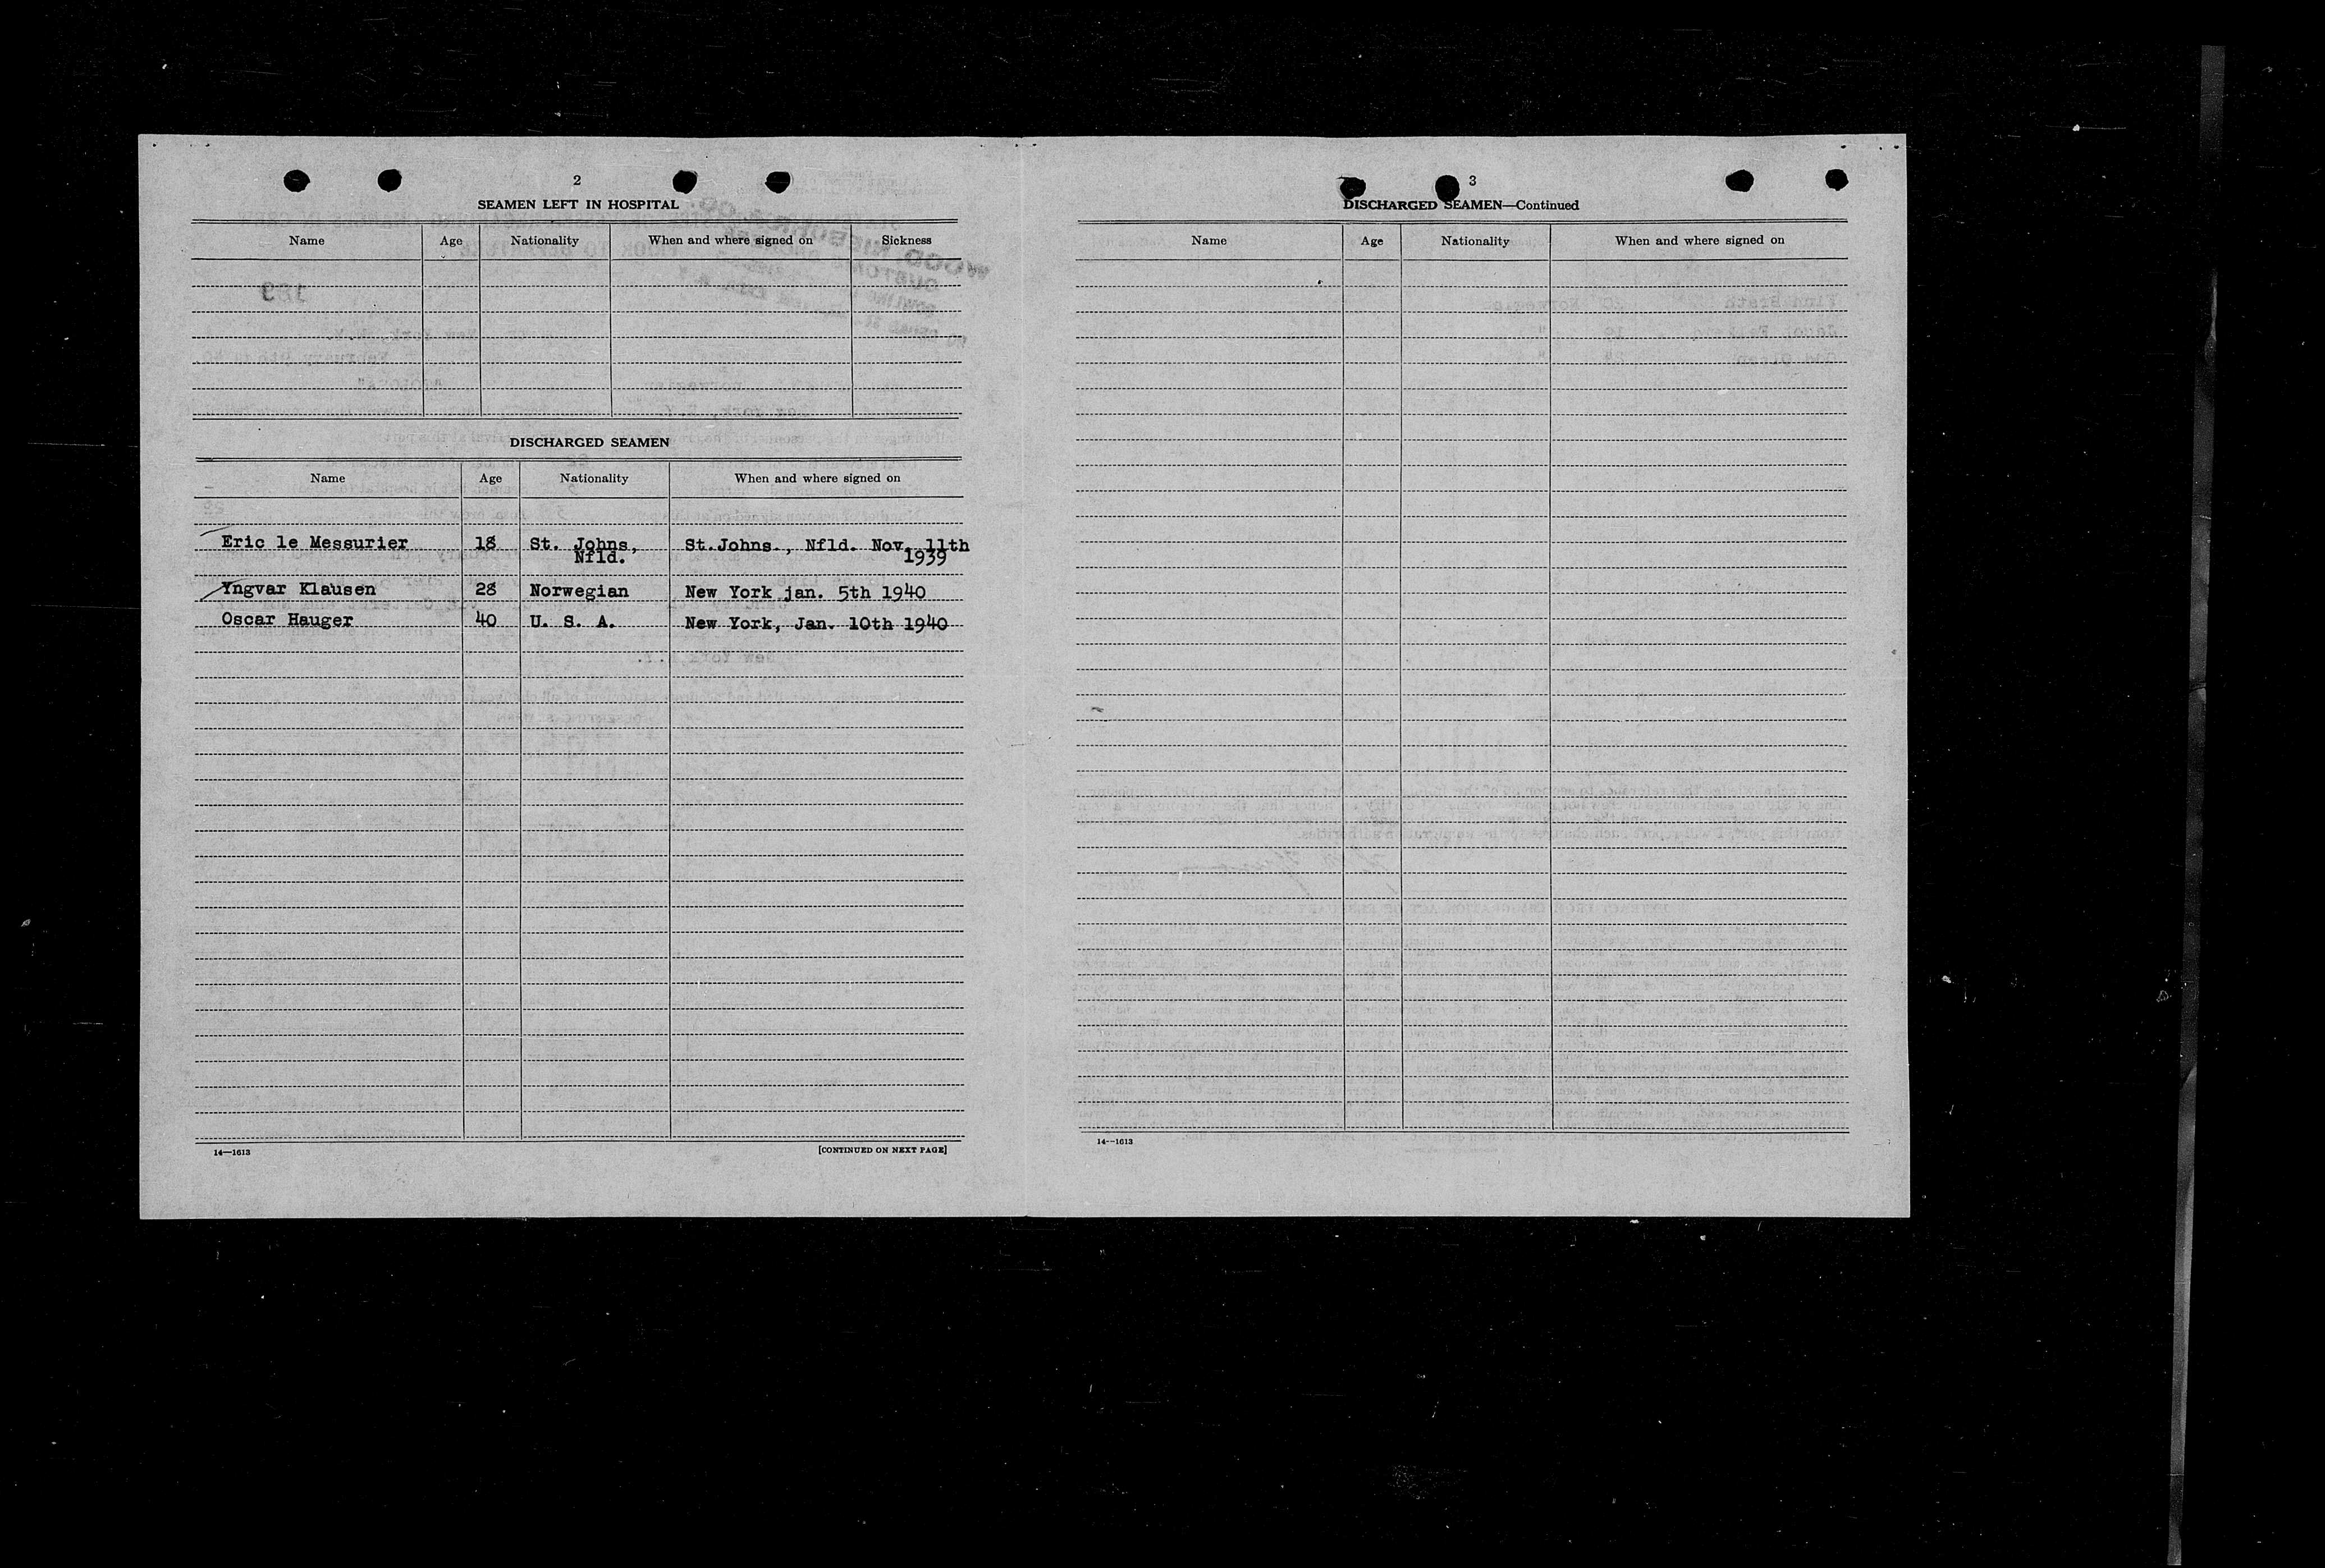 2
SEAMEN LEFT IN HOSPITAL
Name Age Nationality When and where signed on Sickness
DISCHARGED SEAMEN
Name Age Nationality When and where signed on
Eric le Messurier 18 St. Johns, St.Johns., Nfld. Nov. 11th
Nfld. 1939
Yngvar Klausen 28 Norwegian New York jan. 5th 1940
Oscar Hauger 40 U. S. A. New York, Jan. 10th 1940
14—1613 [CONTINUED ON NEXT PAGE]
3
DISCHARGED SEAMEN—Continued
Name Age Nationality When and where signed on
14—1613